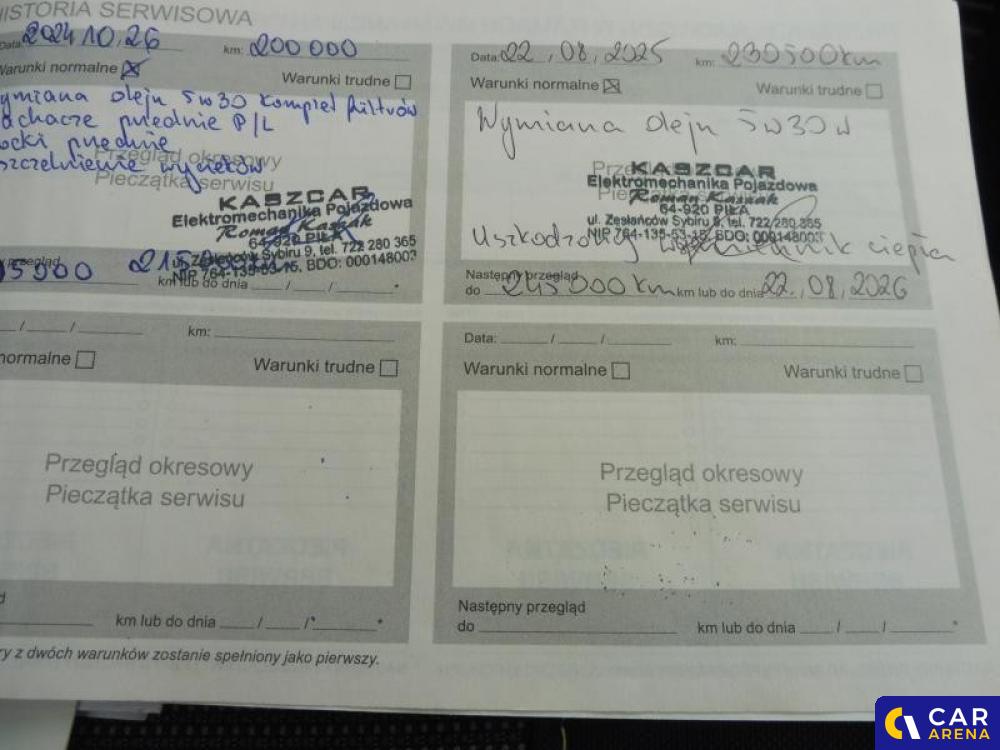 HISTORIA SERWISOWA
Data: 2024 10.26 km: 200 000
Warunki normalne Warunki trudne
wymiana oleju 5w30 komplet filtrów
przednie P/L
klocki przednie
uszczelnienie wycieków
Przegląd okresowy
Pieczątka serwisu
KASZCAR
Elektromechanika Pojazdowa
Roman Kaszak
64-920 PIŁA
ul. Zesłańców Sybiru 9, tel. 722 280 365
NIP 764-135-53-15, BDO: 000148003
przegląd
km lub do dnia / / *
Data: 22.08.2025 km: 230500km
Warunki normalne Warunki trudne
Wymiana oleju 5w30 w
KASZCAR
Elektromechanika Pojazdowa
Roman Kaszak
64-920 PIŁA
ul. Zesłańców Sybiru 9, tel. 722/280 365
NIP 764-135-53-15, BDO: 000148003
Uszkodzony ciepła
Następny przegląd
do 245 000 km km lub do dnia 22.08.2026
/ / km:
normalne Warunki trudne
Przegląd okresowy
Pieczątka serwisu
km lub do dnia / / *
Data: / / km:
Warunki normalne Warunki trudne
Przegląd okresowy
Pieczątka serwisu
Następny przegląd
do km lub do dnia / / *
ry z dwóch warunków zostanie spełniony jako pierwszy.
CAR
ARENA